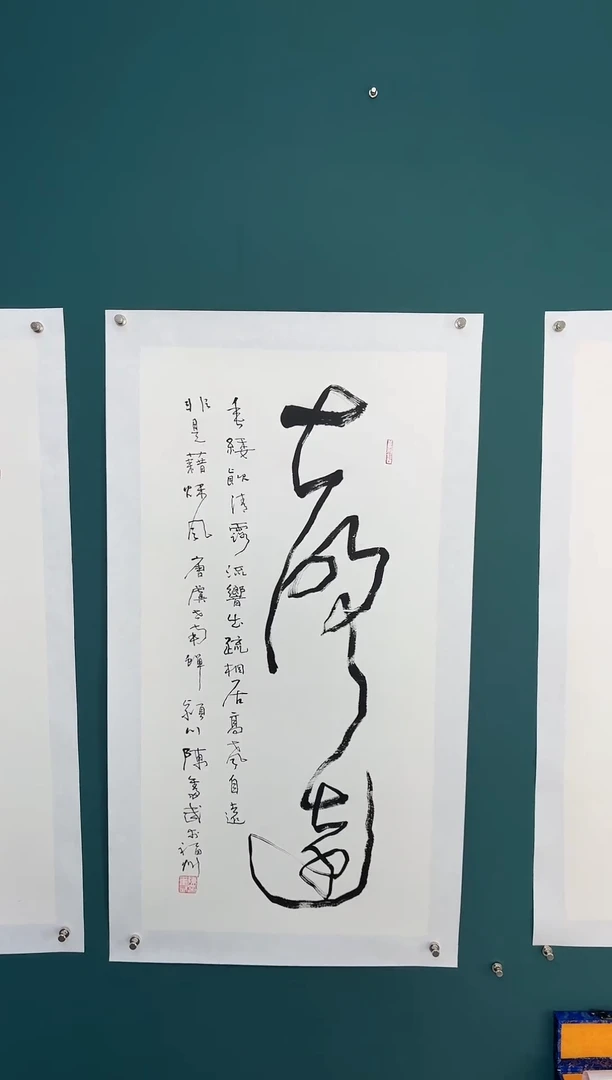 聲遠
垂緌飲清露流響出疏桐居高聲自遠
非是藉秋風 唐虞世南蟬 潁川陳奮武於福州